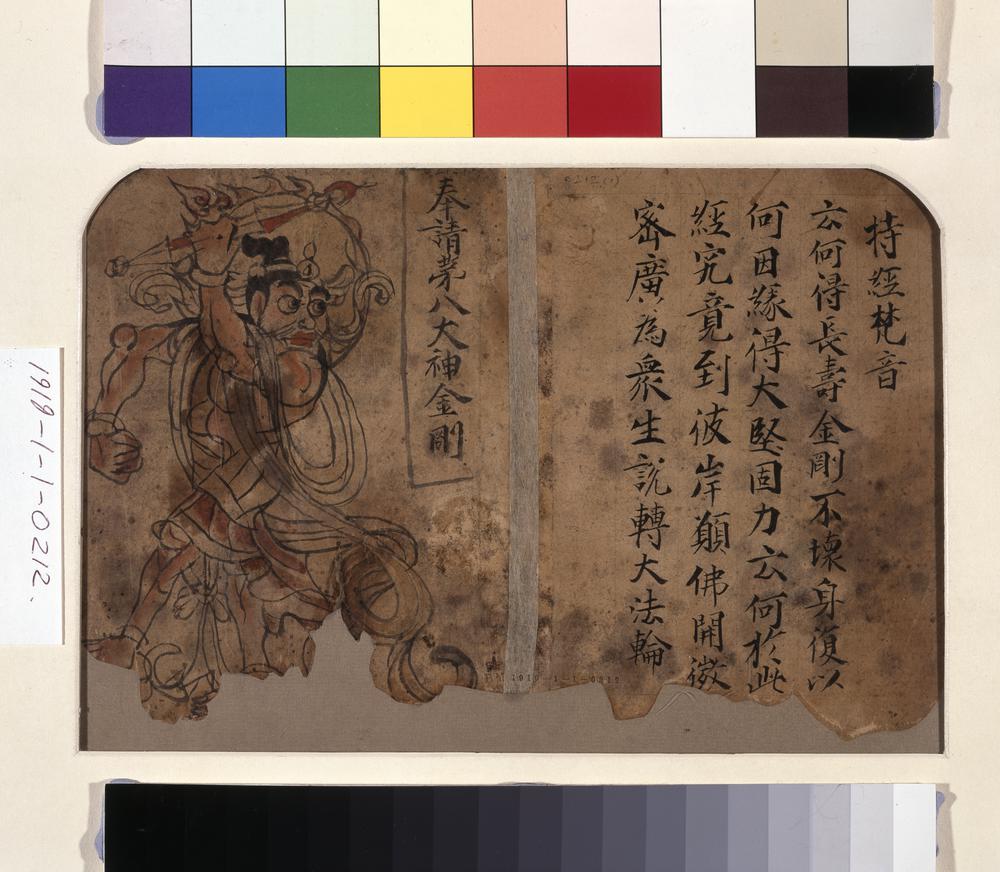 持經梵音
云何得長壽金剛不壞身復以
何因緣得大堅固力云何於此
經究竟到彼岸願佛開微
密廣〻為衆生說轉大法輪
奉請苐八大神金剛
1919-1-1-0212.
1919-1-1-0212